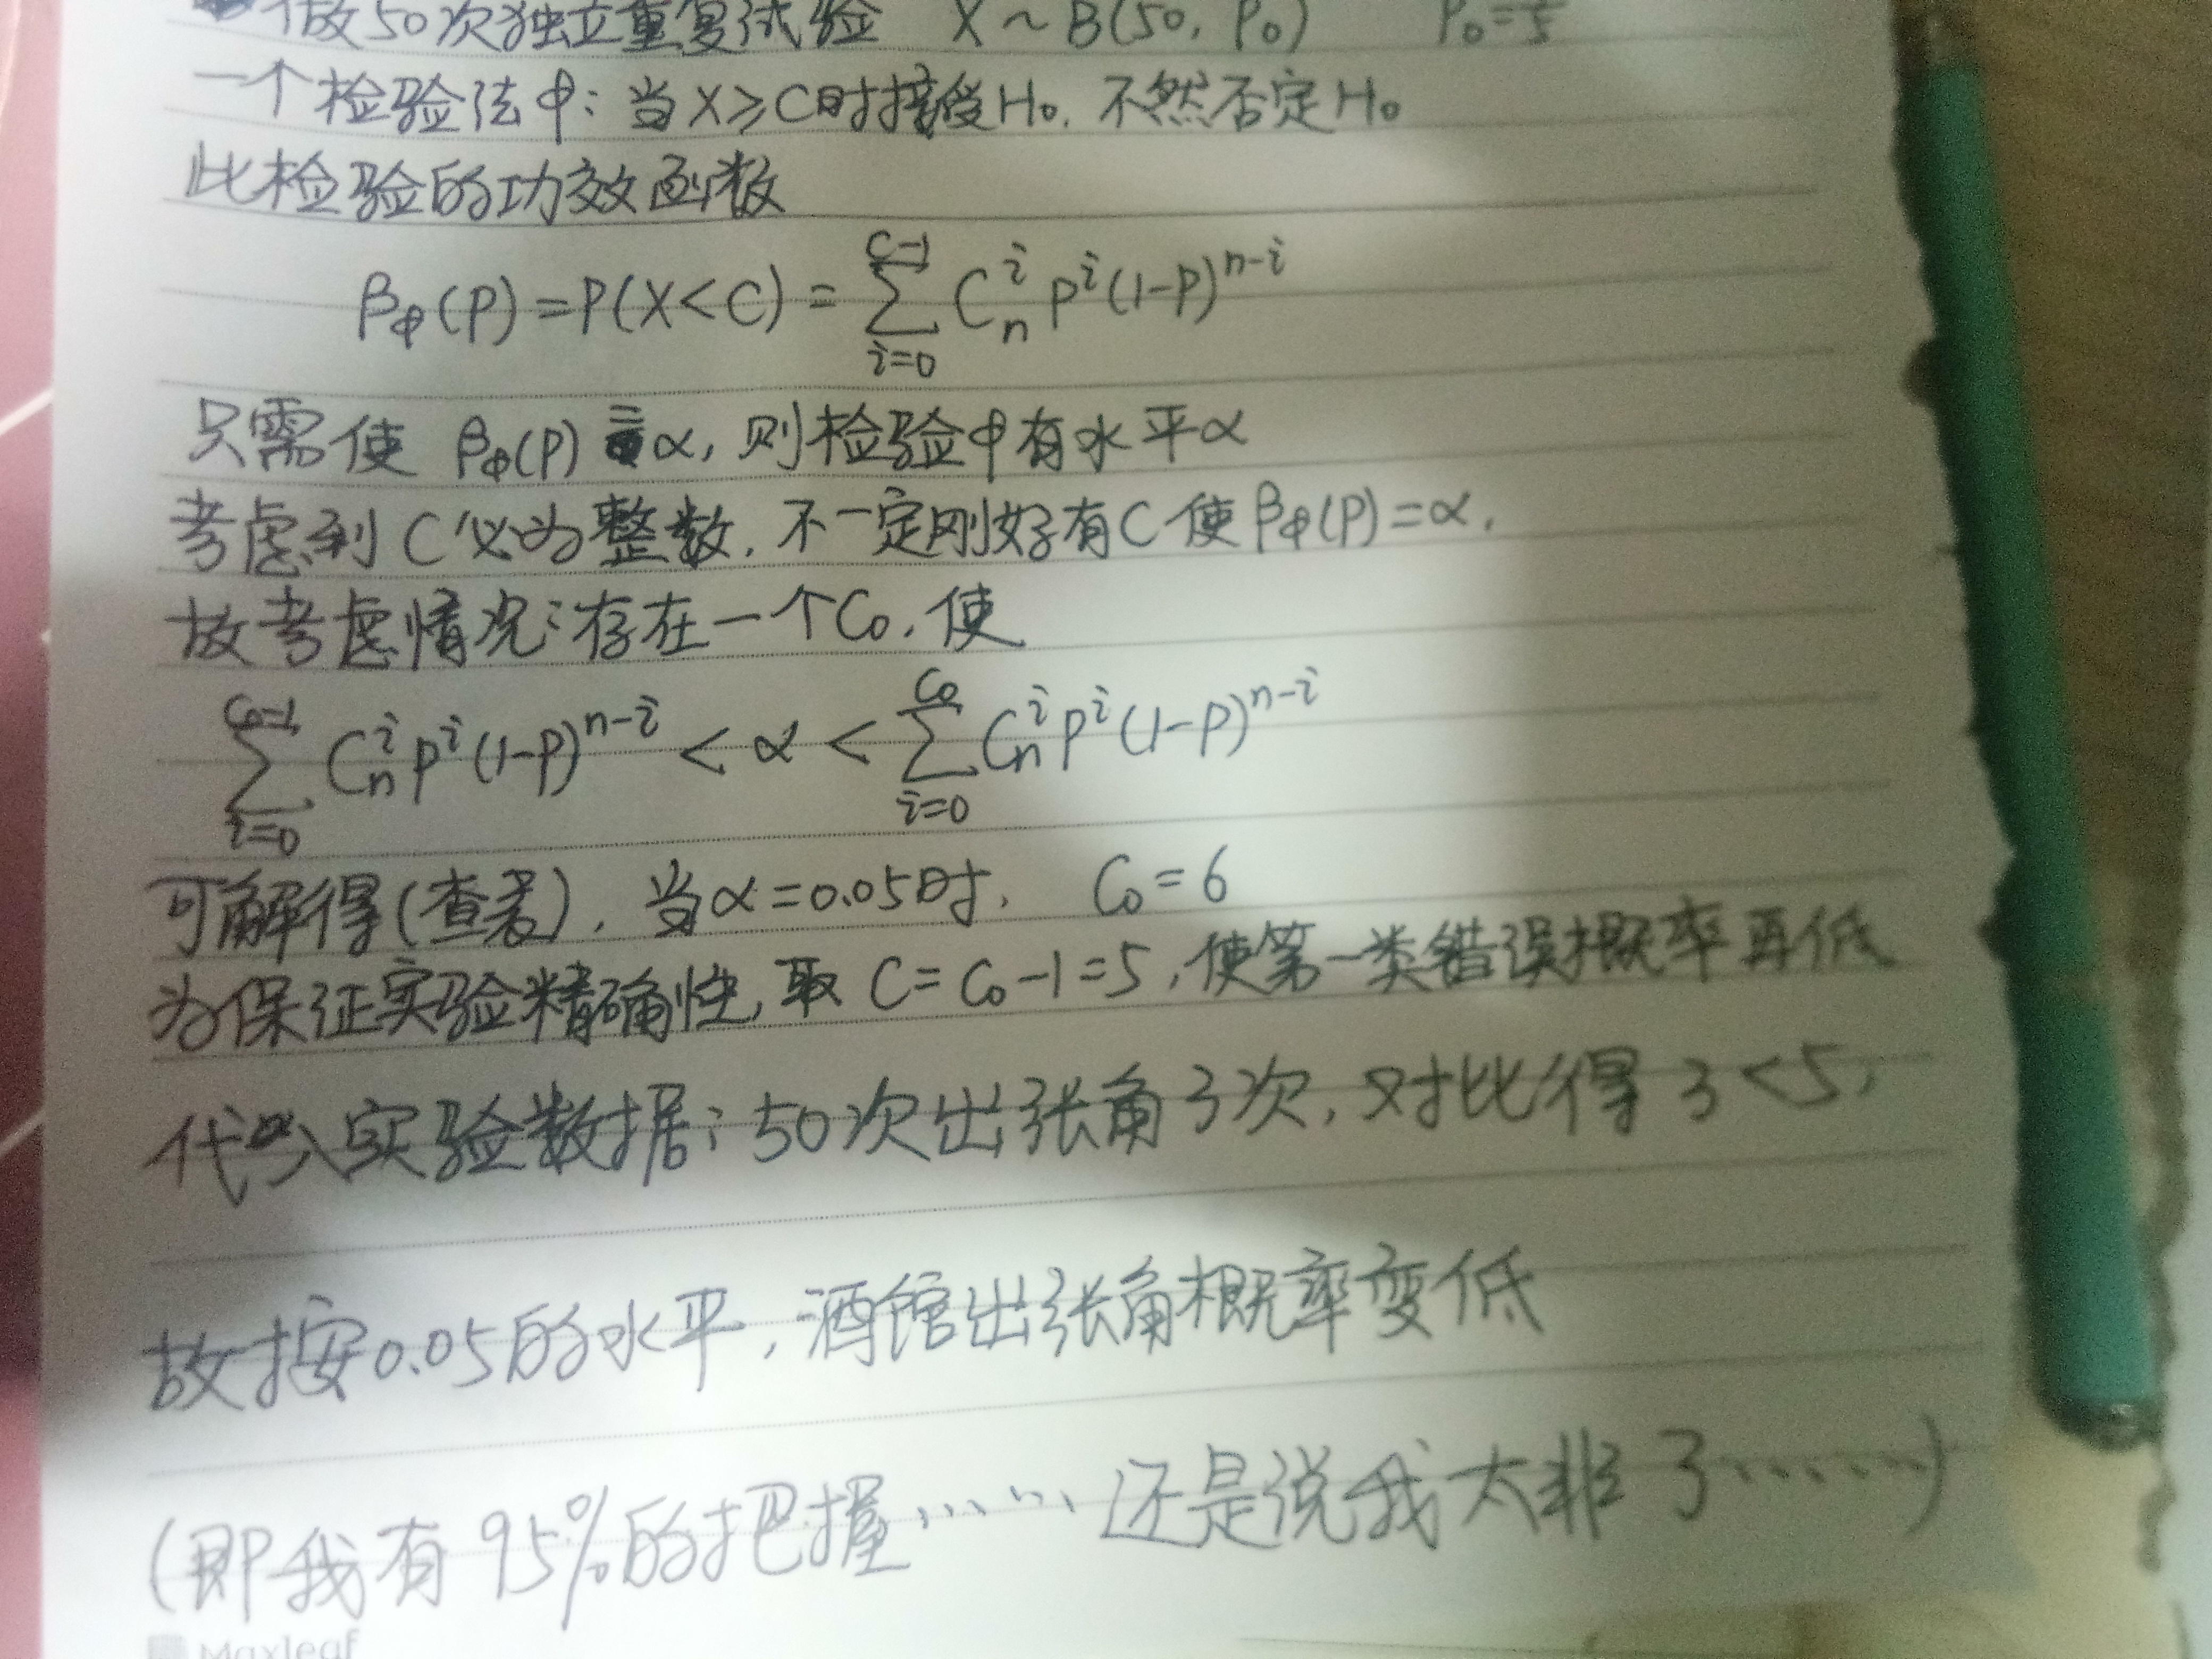 做50次独立重复试验 X~B(50, P₀) P₀=1/5
一个检验法φ: 当X≥C时接受H₀. 不然否定H₀
此检验的功效函数
β_φ(P)=P(X<C)=∑_{i=0}^{C-1} C_n^i P^i(1-P)^{n-i}
只需使 β_φ(P)=α, 则检验φ有水平α
考虑到C必为整数, 不一定刚好有C使β_φ(P)=α.
故考虑情况:存在一个C₀, 使
∑_{i=0}^{C₀-1} C_n^i P^i(1-P)^{n-i} < α < ∑_{i=0}^{C₀} C_n^i P^i(1-P)^{n-i}
可解得(查表), 当α=0.05时, C₀=6
为保证实验精确性, 取 C=C₀-1=5, 使第一类错误概率再低
代入实验数据: 50次出张角3次, 对比得 3<5,
故按0.05的水平, 酒馆出张角概率变低
(即我有95%的把握……还是说我太非了……)
Maxleaf